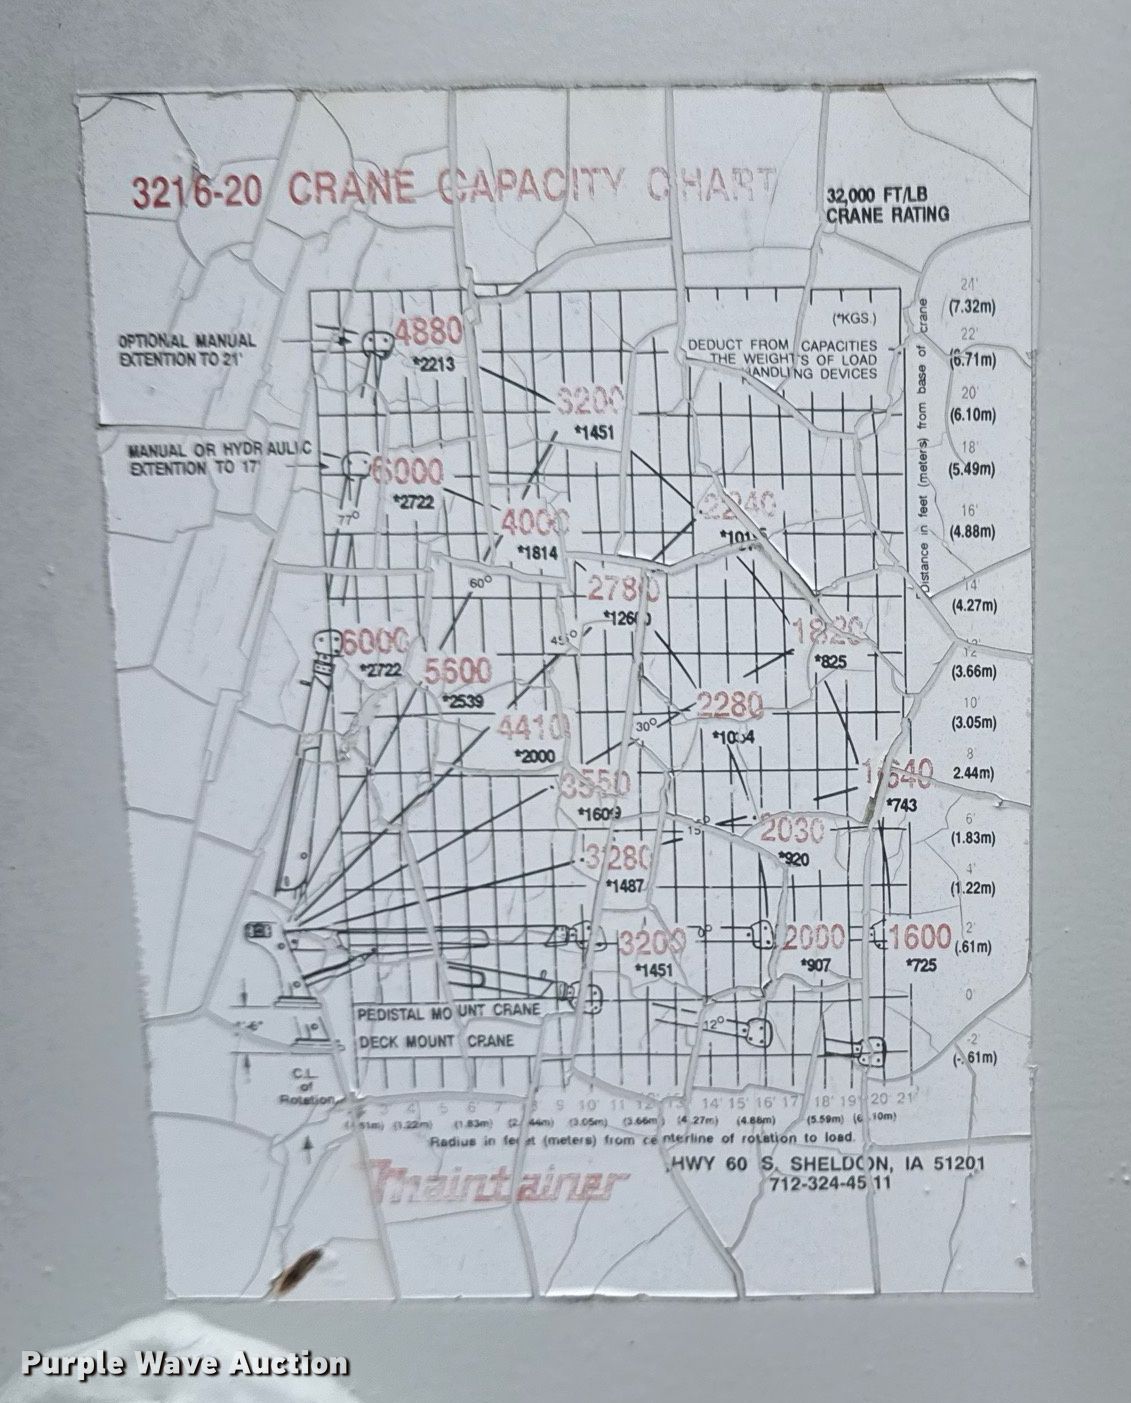 3216-20 CRANE CAPACITY CHART
32,000 FT/LB
CRANE RATING
24'
(7.32m)
(*KGS.)
OPTIONAL MANUAL
EXTENTION TO 21'
4880
*2213
DEDUCT FROM CAPACITIES
THE WEIGHTS OF LOAD
HANDLING DEVICES
22'
(6.71m)
Distance in feet (meters) from base of crane
3200
*1451
20'
(6.10m)
MANUAL OR HYDRAULIC
EXTENTION TO 17'
6000
*2722
18'
(5.49m)
77°
4000
*1814
2240
16'
(4.88m)
60°
2780
*1260
14'
(4.27m)
6000
*2722
45°
1820
*825
12'
(3.66m)
5600
*2539
4410
*2000
30°
2280
10'
(3.05m)
3550
*1609
1640
*743
8
2.44m)
15°
2030
*920
6'
(1.83m)
3280
*1487
4'
(1.22m)
3200
*1451
0°
2000
*907
1600
*725
2'
(.61m)
PEDISTAL MOUNT CRANE
DECK MOUNT CRANE
12°
0
-2
(-.61m)
C.L.
of
Rotation
3 4 5 6 7 8 9 10' 11 12' 13' 14' 15' 16' 17' 18' 19' 20' 21'
(1.22m) (1.83m) (2.44m) (3.05m) (3.66m) (4.27m) (4.88m) (5.59m) (6.10m)
Radius in feet (meters) from centerline of rotation to load.
Maintainer
HWY 60 S. SHELDON, IA 51201
712-324-4511
Purple Wave Auction